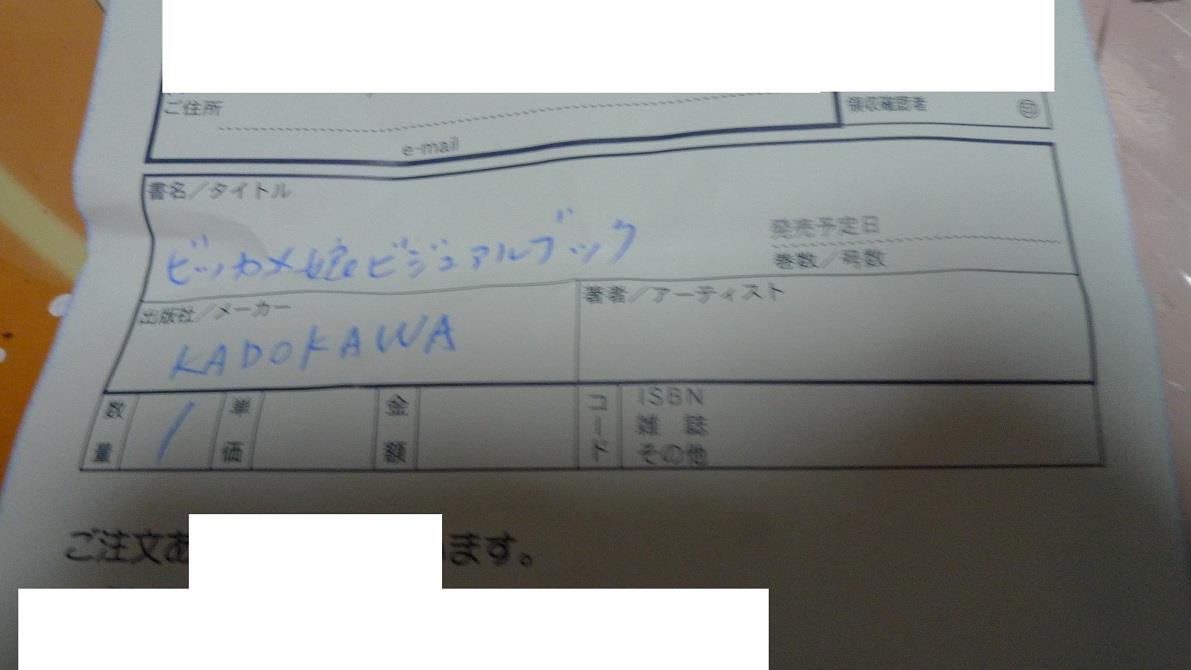 ご住所
領収確認者 ㊞
e-mail
書名／タイトル
ビッカメ娘ビジュアルブック
発売予定日
巻数／号数
出版社／メーカー
KADOKAWA
著者／アーティスト
数量 1 単価 金額 コード
ISBN
雑 誌
その他
ご注文あ
います。